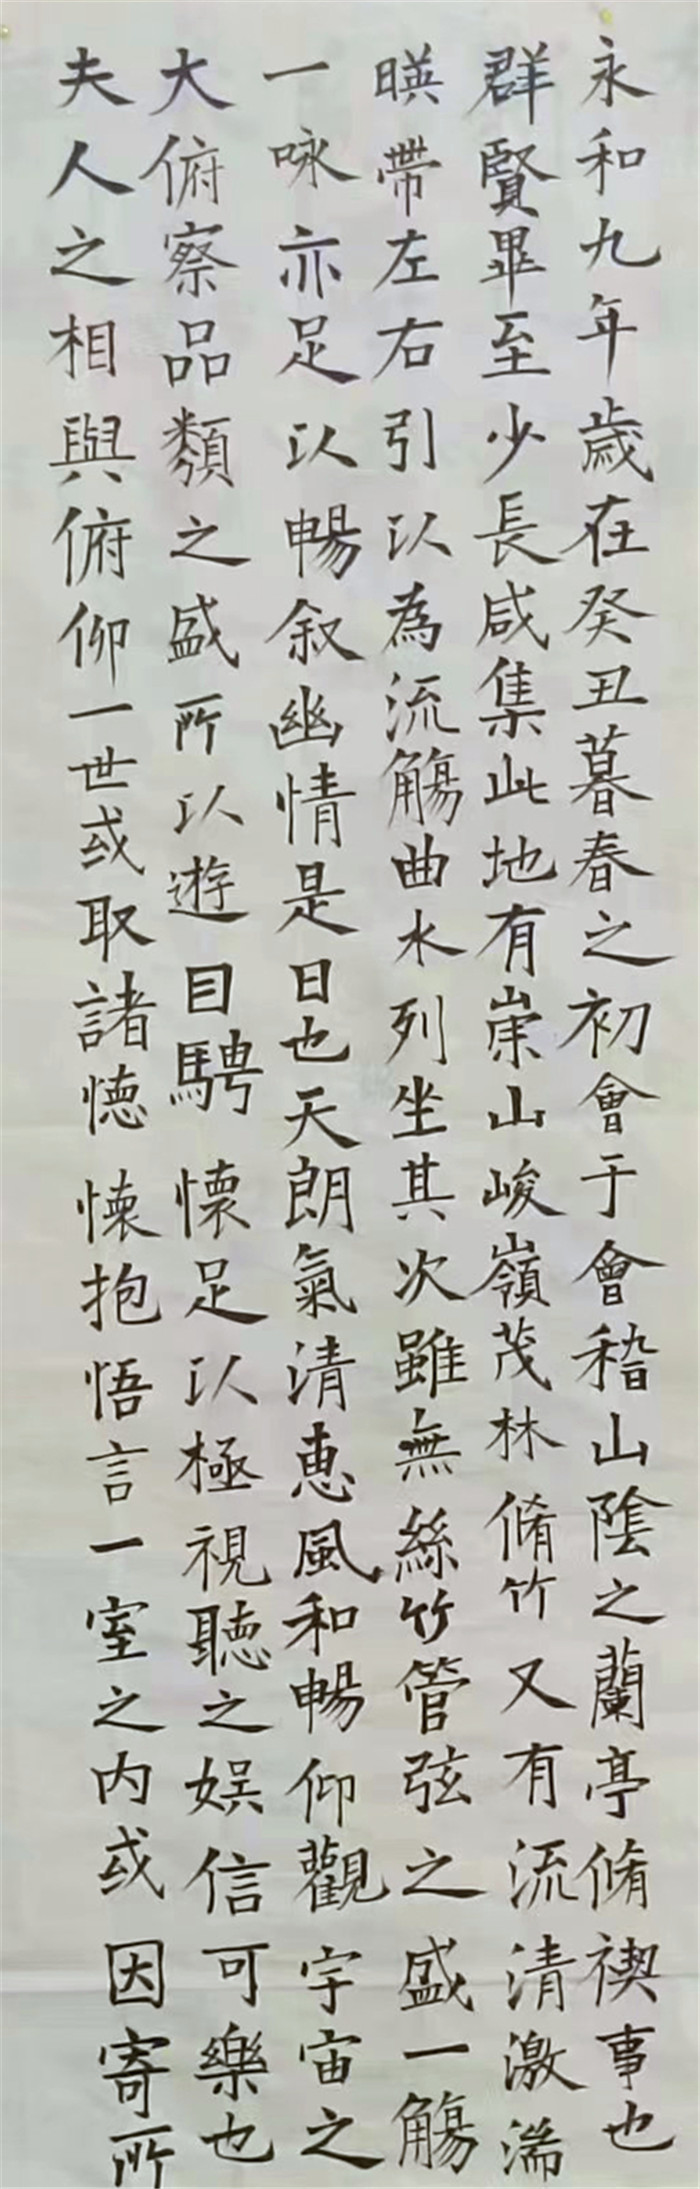 永和九年歲在癸丑暮春之初會于會稽山陰之蘭亭脩禊事也
群賢畢至少長咸集此地有崇山峻嶺茂林脩竹又有流清激湍
暎帶左右引以為流觴曲水列坐其次雖無絲竹管弦之盛一觴
一咏亦足以暢叙幽情是日也天朗氣清惠風和暢仰觀宇宙之
大俯察品類之盛所以遊目騁懷足以極視聽之娱信可樂也
夫人之相與俯仰一世或取諸懐懷抱悟言一室之内或因寄所